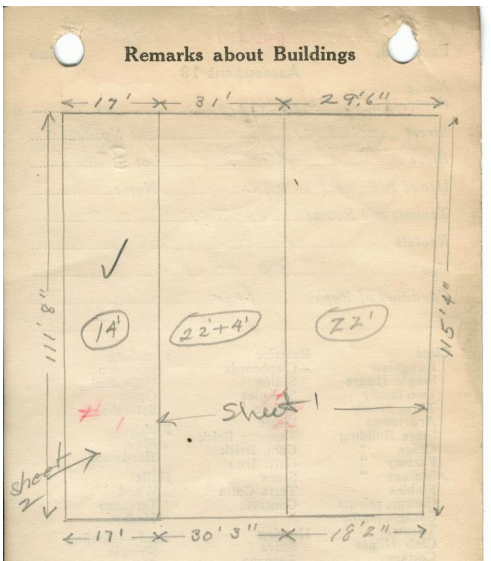 Remarks about Buildings
17' 31' 29'6"
111' 8"
115' 4"
14' 22'+4' 22'
# 1
Sheet 1
sheet
2
17' 30' 3" 18' 2"